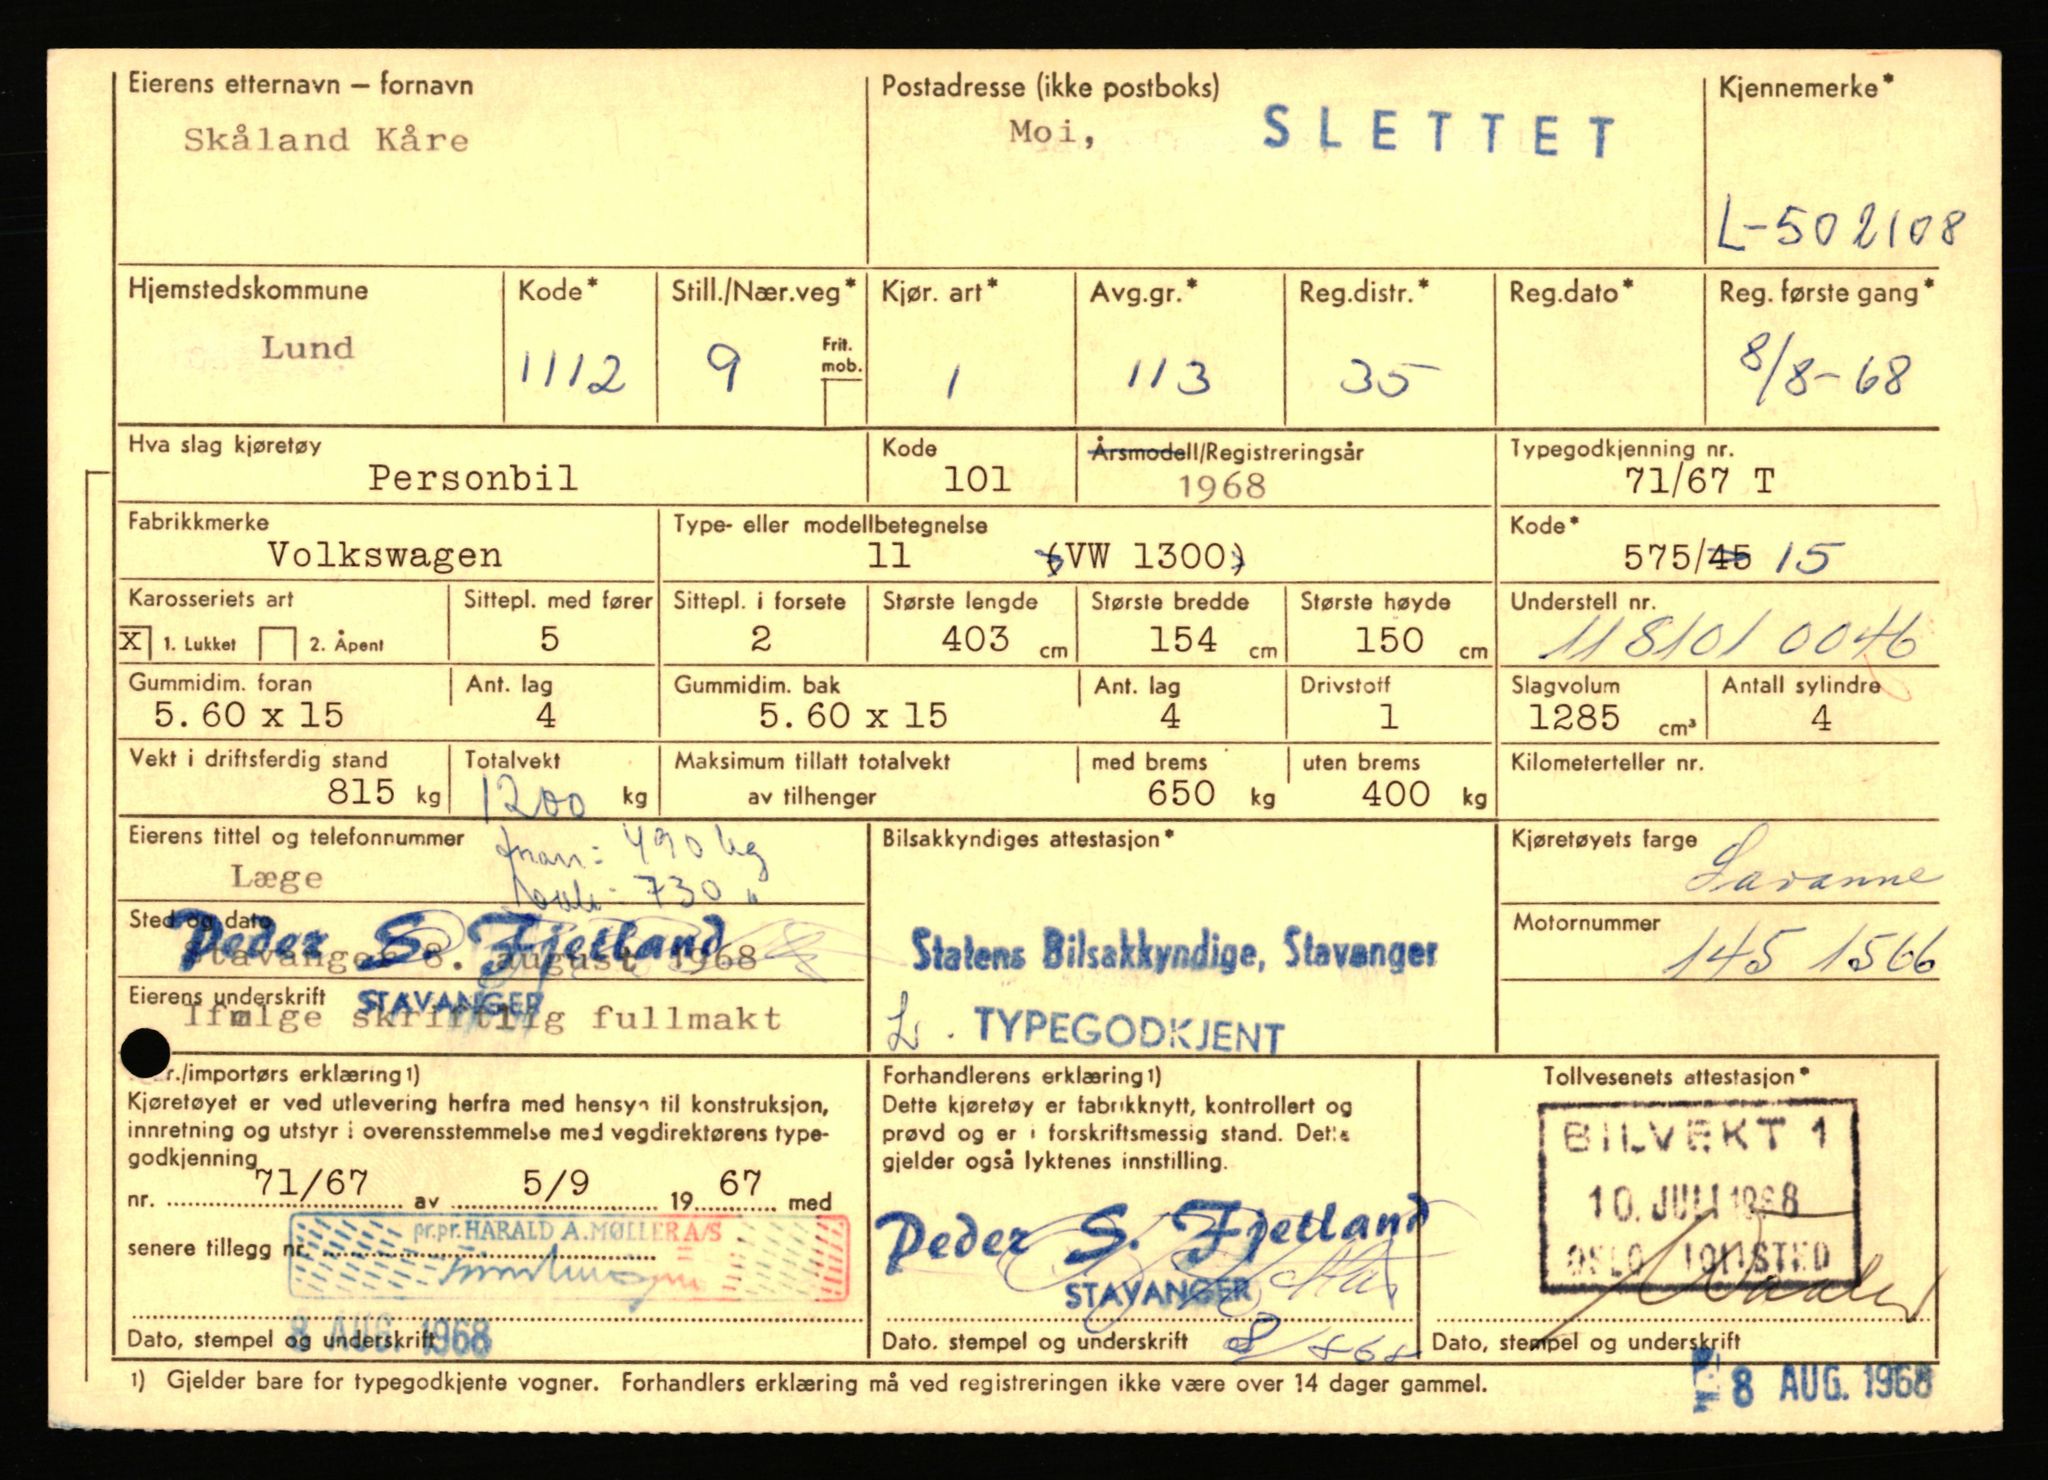 Eierens etternavn – fornavn
Skåland Kåre
Postadresse (ikke postboks)
Moi,
SLETTET
Kjennemerke*
L-502108
Hjemstedskommune
Lund
Kode*
1112
Still./Nær.veg*
9
Frit.
mob.
Kjør. art*
1
Avg.gr.*
113
Reg.distr.*
35
Reg.dato*
Reg. første gang*
8/8-68
Hva slag kjøretøy
Personbil
Kode
101
Årsmodell/Registreringsår
1968
Typegodkjenning nr.
71/67 T
Fabrikkmerke
Volkswagen
Type- eller modellbetegnelse
11 (VW 1300)
Kode*
575/45 15
Karosseriets art
X 1. Lukket 2. Åpent
Sittepl. med fører
5
Sittepl. i forsete
2
Største lengde
403 cm
Største bredde
154 cm
Største høyde
150 cm
Understell nr.
118101 0046
Gummidim. foran
5.60 x 15
Ant. lag
4
Gummidim. bak
5.60 x 15
Ant. lag
4
Drivstoff
1
Slagvolum
1285 cm³
Antall sylindre
4
Vekt i driftsferdig stand
815 kg
Totalvekt
1200 kg
Maksimum tillatt totalvekt
av tilhenger
med brems
650 kg
uten brems
400 kg
Kilometerteller nr.
Eierens tittel og telefonnummer
Læge
foran: 490 kg
bak: 730 "
Bilsakkyndiges attestasjon*
Statens Bilsakkyndige, Stavanger
TYPEGODKJENT
Kjøretøyets farge
Savanne
Sted og dato
Stavanger 8. august 1968
Peder S. Fjetland
STAVANGER
Motornummer
145 1566
Eierens underskrift
Ifølge skriftlig fullmakt
r./importørs erklæring1)
Kjøretøyet er ved utlevering herfra med hensyn til konstruksjon,
innretning og utstyr i overensstemmelse med vegdirektørens type-
godkjenning
nr. 71/67 av 5/9 19 67 med
senere tillegg nr.
pr.pr. HARALD A. MØLLER A/S
8 AUG. 1968
Dato, stempel og underskrift
Forhandlerens erklæring1)
Dette kjøretøy er fabrikknytt, kontrollert og
prøvd og er i forskriftsmessig stand. Dette
gjelder også lyktenes innstilling.
Peder S. Fjetland
STAVANGER
Dato, stempel og underskrift 8/8 68
Tollvesenets attestasjon*
BILVEKT 1
10. JULI 1968
OSLO TOLLSTED
Dato, stempel og underskrift
8 AUG. 1968
1) Gjelder bare for typegodkjente vogner. Forhandlers erklæring må ved registreringen ikke være over 14 dager gammel.